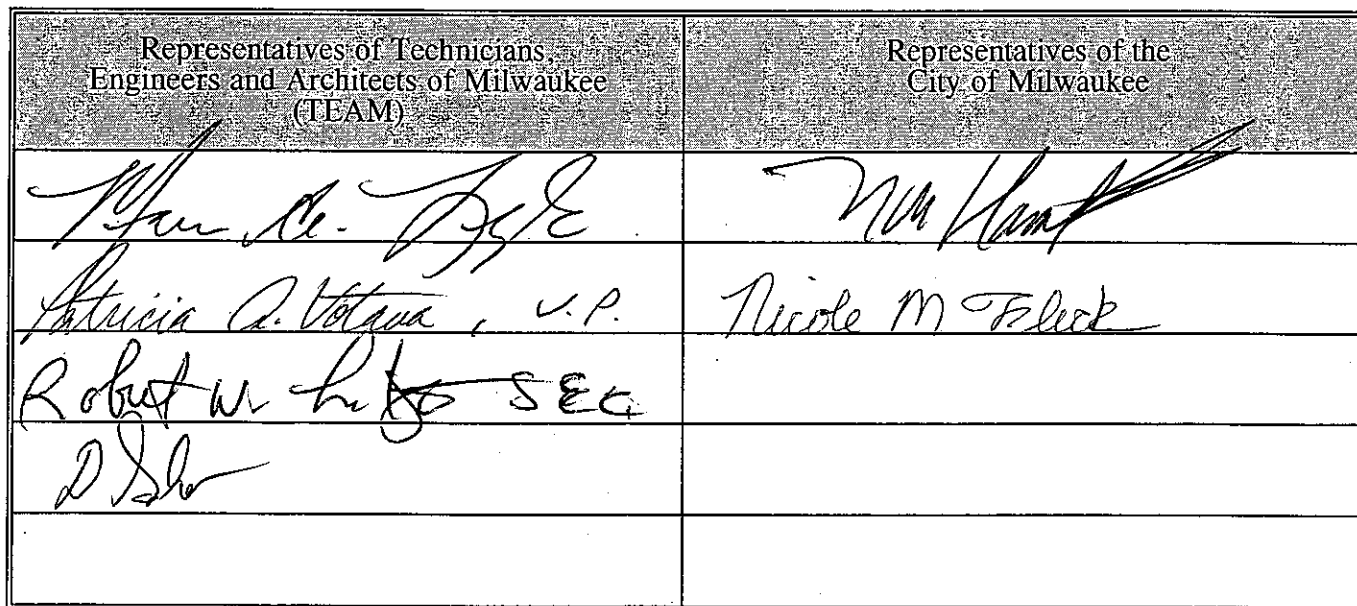 Representatives of Technicians,
Engineers and Architects of Milwaukee
(TEAM)
Representatives of the
City of Milwaukee
Patricia A. Votava, V.P.
Nicole M Fleck
Robert W. SEC.
D